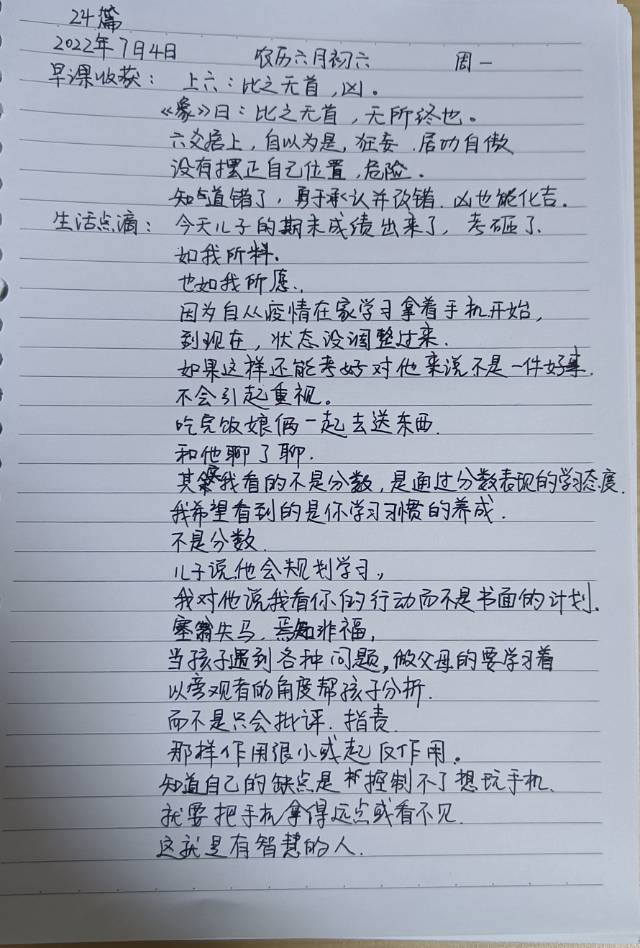 24篇
2022年7月4日 农历六月初六 周一
早课收获：上六：比之无首，凶。
《象》曰：比之无首，无所终也。
六爻居上，自以为是，狂妄，居功自傲
没有摆正自己位置，危险。
知道错了，勇于承认并改错，凶也能化吉。
生活点滴：今天儿子的期末成绩出来了，考砸了.
如我所料.
也如我所愿.
因为自从疫情在家学习拿着手机开始，
到现在，状态没调整过来.
如果这样还能考好对他来说不是一件好事.
不会引起重视。
吃完饭娘俩一起去送东西.
和他聊了聊.
其实我看的不是分数，是通过分数表现的学习态度.
我希望看到的是你学习习惯的养成.
不是分数.
儿子说他会规划学习，
我对他说我看你的行动而不是书面的计划.
塞翁失马，焉知非福，
当孩子遇到各种问题，做父母的要学习着
以旁观者的角度帮孩子分析.
而不是只会批评.指责.
那样作用很小或起反作用。
知道自己的缺点是控制不了想玩手机.
就要把手机拿得远点或看不见.
这就是有智慧的人.